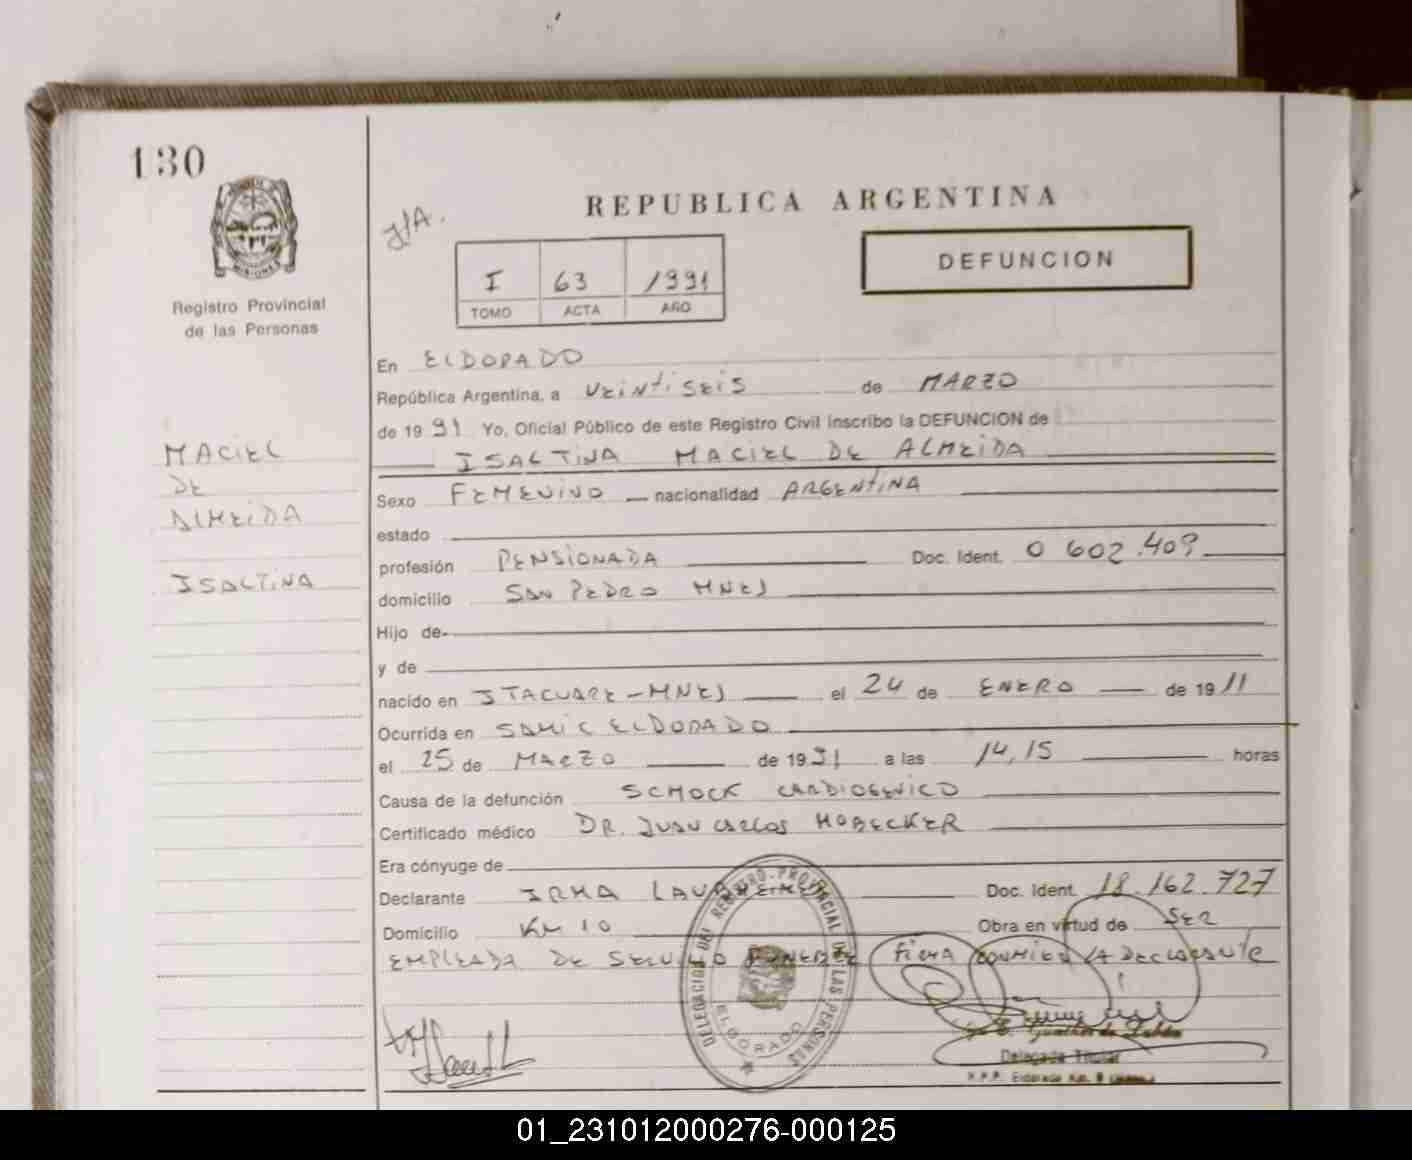 130
Registro Provincial
de las Personas
REPUBLICA ARGENTINA
J/A.
I 63 1991
TOMO ACTA AÑO
DEFUNCION
MACIEL
DE
ALMEIDA
ISALTINA
En ELDORADO
República Argentina, a VEINTISEIS de MARZO
de 1991 Yo, Oficial Público de este Registro Civil inscribo la DEFUNCION de
ISALTINA MACIEL DE ALMEIDA
Sexo FEMENINO nacionalidad ARGENTINA
estado
profesión PENSIONADA Doc. Ident. 0 602.409
domicilio SAN PEDRO MNES
Hijo de
y de
nacido en ITACUARE-MNES el 24 de ENERO de 1911
Ocurrida en SAMIC ELDORADO
el 25 de MARZO de 1991 a las 14,15 horas
Causa de la defunción SCHOCK CARDIOGENICO
Certificado médico DR. JUAN CARLOS HOBECKER
Era cónyuge de
Declarante IRMA Doc. Ident. 18.162.727
Domicilio KM 10 Obra en virtud de SER
EMPLEADA DE SERVICIO FUNEBRE FIRMA CONMIGO LA DECLARANTE
DELEGACION DEL REGISTRO PROVINCIAL DE LAS PERSONAS
ELDORADO
Delegada Titular
R.P.P. Eldorado Km. 9
01_231012000276-000125